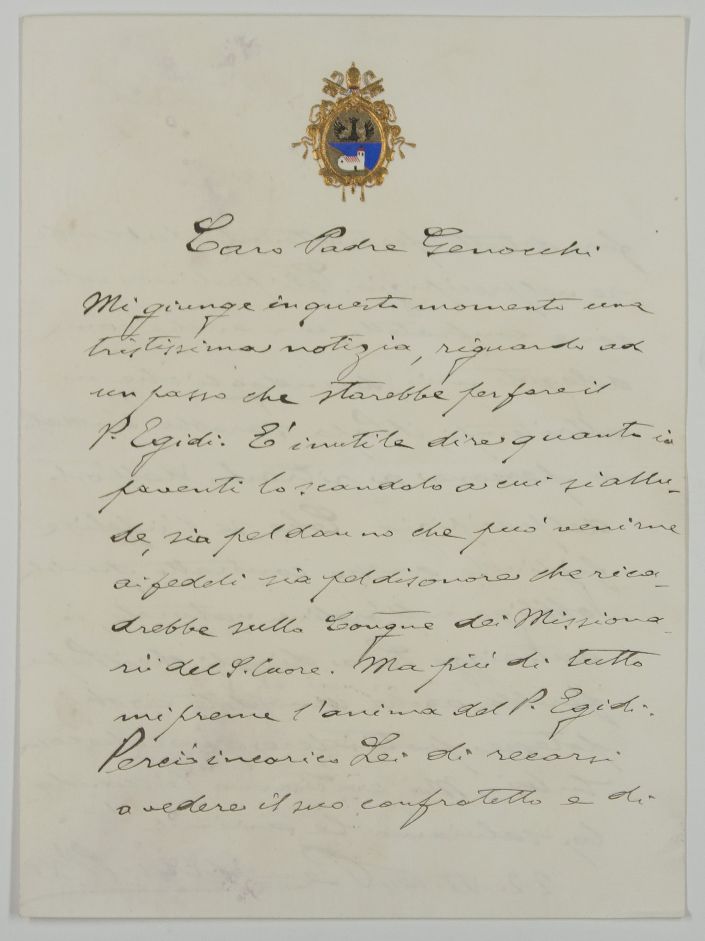 Caro Padre Genocchi
Mi giunge in questo momento una
tristissima notizia, riguardo ad
un passo che starebbe per fare il
P. Egidi. E' inutile dire quanto io
paventi lo scandolo a cui si allu-
de, sia pel danno che può venirne
ai fedeli sia pel disonore che rica-
drebbe sulla Congne dei Missiona-
rii del S. Cuore. Ma più di tutto
mi preme l'anima del P. Egidi.
Perciò incarico Lei di recarsi
a vedere il suo confratello e di